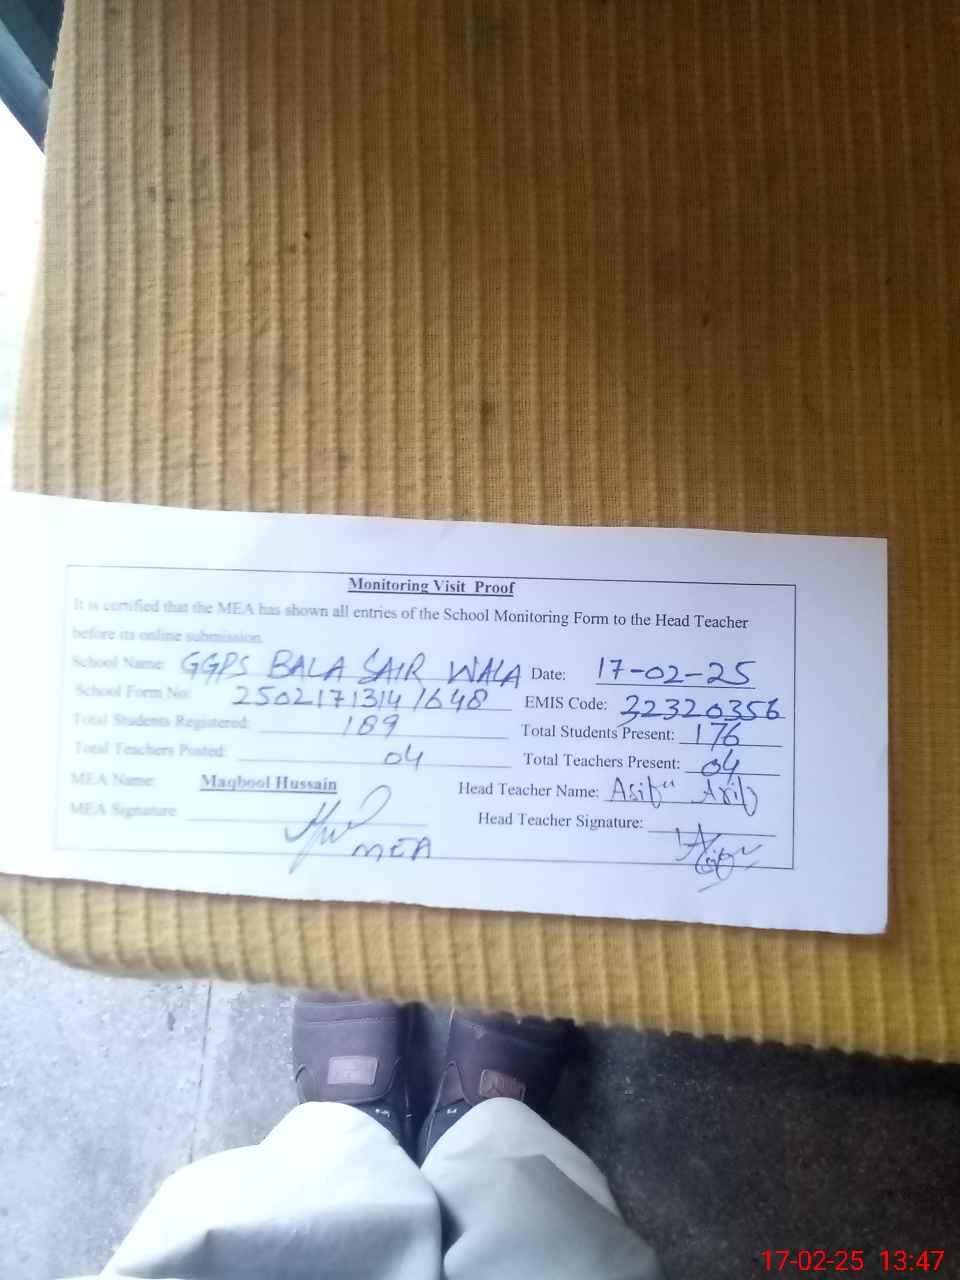 Monitoring Visit Proof
It is certified that the MEA has shown all entries of the School Monitoring Form to the Head Teacher
before its online submission.
School Name: GGPS BALA SAIR WALA Date: 17-02-25
School Form No: 2502171314 1648 EMIS Code: 32320356
Total Students Registered: 189 Total Students Present: 176
Total Teachers Posted: 04 Total Teachers Present: 04
MEA Name: Maqbool Hussain Head Teacher Name: Asifa Arif
MEA Signature Head Teacher Signature:
MEA
17-02-25 13:47